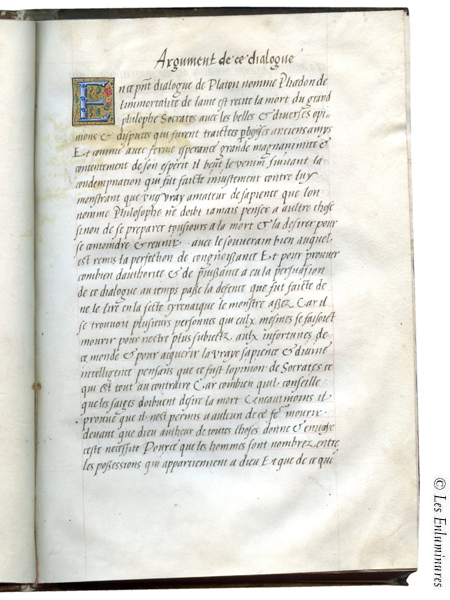 Argument de ce dialogue
En ce pnt dialogue de Platon nomme Phadon de
l'immortalite de lame est recite la mort du grand
philosphe Socrates avec les belles & diverses opi-
nions & disputes qui furent traictees anciens amys
Et comme avec ferme esperance grande magnanimite &
contentement de son esperit il beut le venim suivant la
condempnation qui fut faicte iniustement contre luy
monstrant que ung vray amateur de sapience que lon
nomme Philosophe ne doibt iamais penser a aultre chose
sinon de se preparer tousiours a la mort & la desirer pour
se conioindre & reunir avec le souverain bien auquel
est remis la perfection de congnoissance Et pour prouver
combien dauthorite & de puissance a eu la persuasion
de ce dialogue au temps passe la defence que fut faicte de
ne le lire en la secte cyrenaique le monstre assez Car il
se trouvoit plusieurs personnes qui eulx mesmes se faisoiet
mourir pour nestre plus subiectz aulx infortunes de
ce monde & pour acquerir la vraye sapience & divine
intelligence pensans que ce fust lopinion de Socrates ce
qui est tout au contraire Car combien quil conseille
que les saiges doibvent desire la mort Ceneantmoins il
prouve que il nest permis a aulcun de ce fe mourir
devant que dieu autheur de toutes choses donne & envoye
ceste necessite Pource que les hommes sont nombrez entre
les possessions qui appartiennent a dieu Et que de ce qui
© Les Enluminures